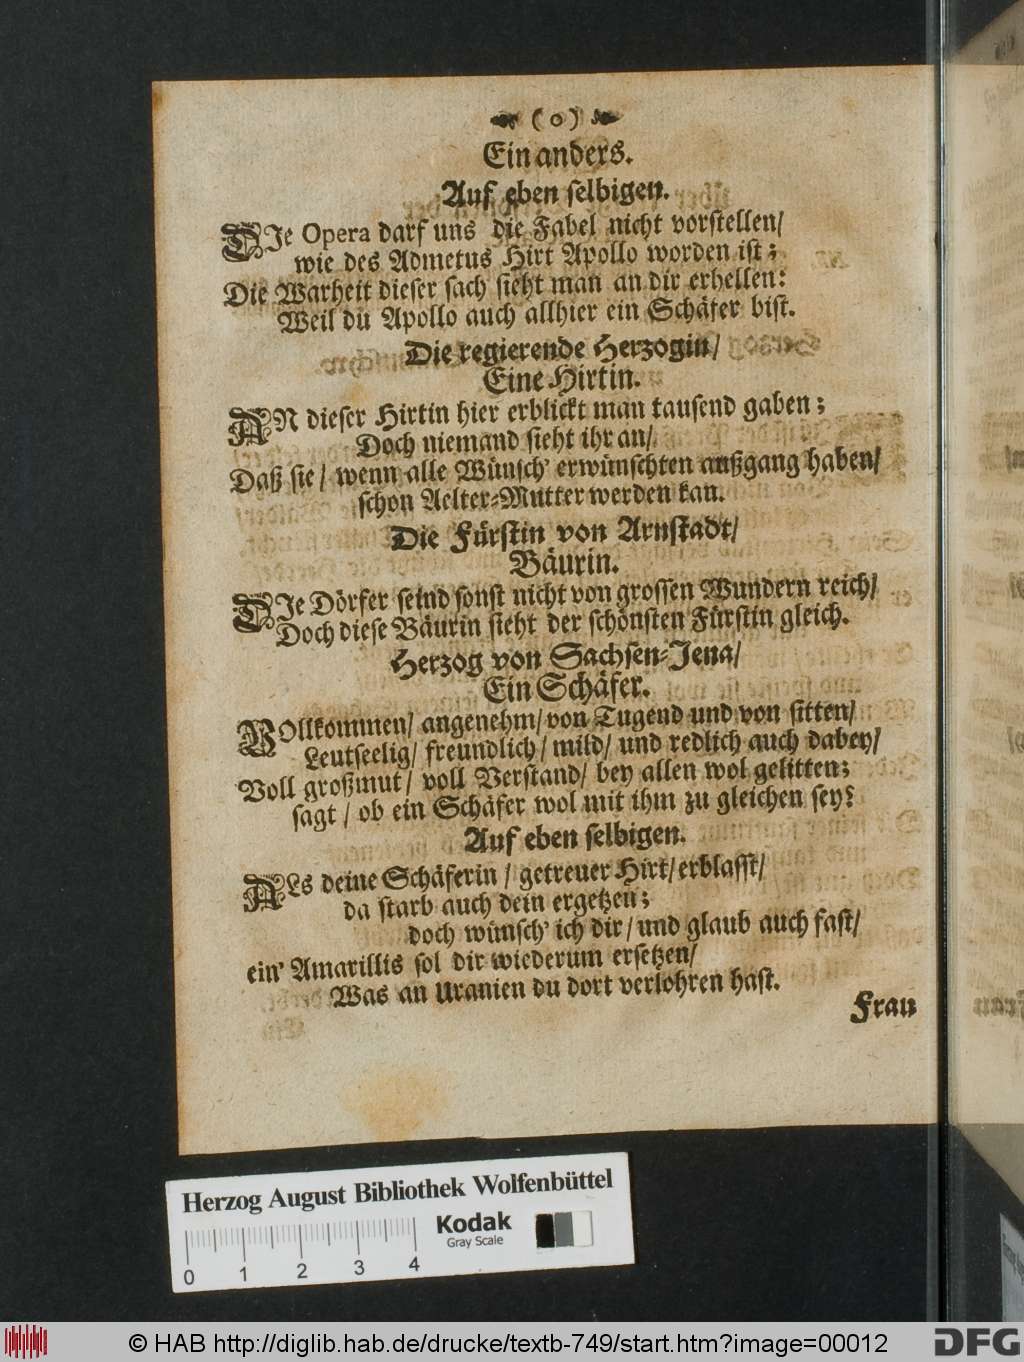 ( o )
Ein anders.
Auf eben selbigen.
DIe Opera darf uns die Fabel nicht vorstellen/
wie des Admetus Hirt Apollo worden ist;
Die Warheit dieser sach sieht man an dir erhellen:
Weil du Apollo auch allhier ein Schäfer bist.
Die regierende Herzogin/
Eine Hirtin.
AN dieser Hirtin hier erblickt man tausend gaben;
Doch niemand sieht ihr an/
Daß sie / wenn alle Wünsch' erwünschten außgang haben/
schon Aelter-Mutter werden kan.
Die Fürstin von Arnstadt/
Bäurin.
DIe Dörfer seind sonst nicht von grossen Wundern reich/
Doch diese Bäurin sieht der schönsten Fürstin gleich.
Herzog von Sachsen-Jena/
Ein Schäfer.
VOllkommen/ angenehm/ von Tugend und von sitten/
Leutseelig/ freundlich/ mild/ und redlich auch dabey/
Voll großmut/ voll Verstand/ bey allen wol gelitten;
sagt / ob ein Schäfer wol mit ihm zu gleichen sey?
Auf eben selbigen.
ALs deine Schäferin / getreuer Hirt/ erblasst/
da starb auch dein ergetzen;
doch wünsch' ich dir/ und glaub auch fast/
ein' Amarillis sol dir wiederum ersetzen/
Was an Uranien du dort verlohren hast.
Frau
Herzog August Bibliothek Wolfenbüttel
Kodak
Gray Scale
0 1 2 3 4
© HAB http://diglib.hab.de/drucke/textb-749/start.htm?image=00012
DFG